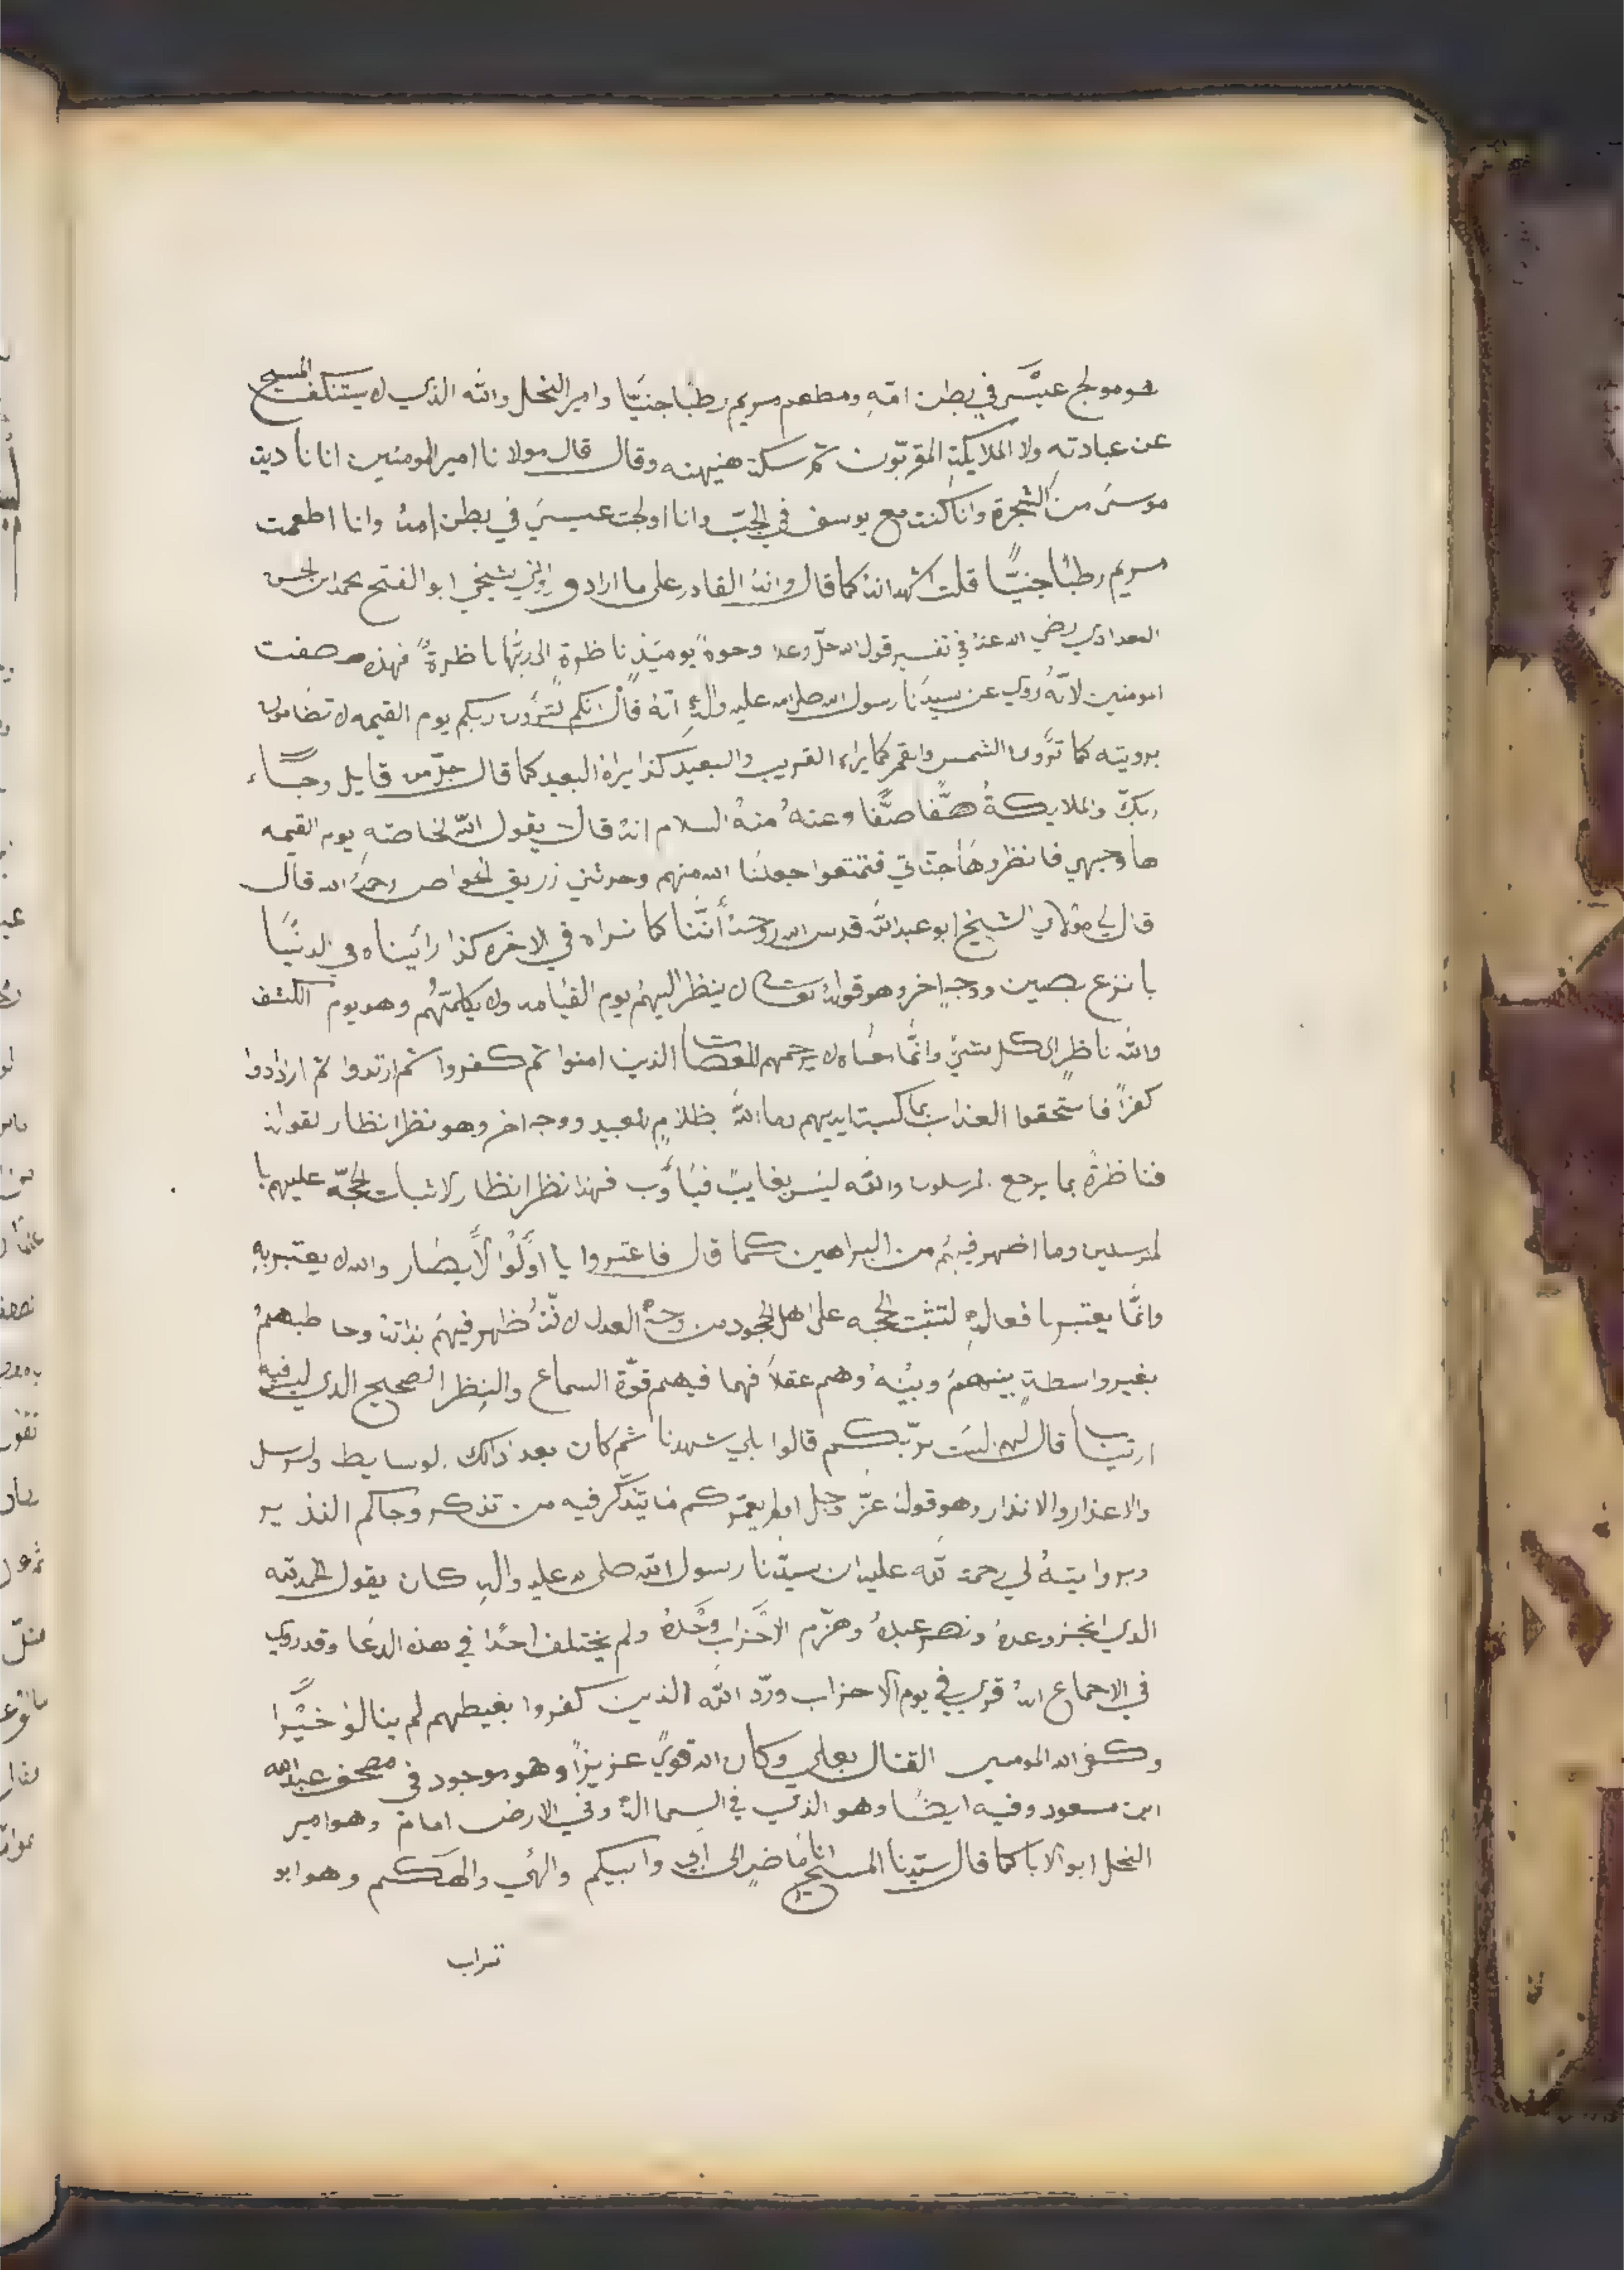 هو مولج عيسى في بطن امّهِ ومطعم مريم رطبًا جنيًّا وامير النحل والله الذي لا يستنكف المسيح
عن عبادته ولا الملايكة المقرّبون ثم سكت هنيهنه وقال قال مولانا امير المومنين انا ناديت
موسىَ من الشجرة وانا كنت مع يوسف في الجبّ وانا اولجت عيسىَ في بطن امهُ وانا اطعمت
مريم رطبًا جنيًّا قلت اشهد انهُ كما قال وانهُ القادر على ما اراد و شيخي ابو الفتح محمد ابن الحسن
البغدادي رضي الله عنهُ في تفسير قول الله جلّ وعلا وجوهٌ يوميَذٍ ناظرة الى ربّها ناظرةٌ فهذه صفت
المومنين لانّهُ روي عن سيدَنا رسول الله صلى الله عليه والهِ انّهُ قال انكم لترَون ربكم يوم القيمه لا تضامون
برويته كما تَرَون الشمس والقمر كما يراه القريب والبعيد كذا يراهُ البعيد كما قال جلّ من قايل وجاء
ربكّ والملايكةُ صفًّا صفًّا وعنهُ منهُ السلام انهُ قال يقول اللّه لخاصّته يوم القيمه
ها وجهي فانظروا هَا جنّاتي فتمتعوا جعلنا الله منهم وحدثني زريق الخواص رحمهُ الله قال
قال لي مولاي الشيخ ابو عبد اللّه قدس الله روحهُ أنّنا كما نراه في الاخره كذا رأيناه في الدنيَا
بانزع بصين ووجهٍ اخر وهو قولهُ تعالى لا ينظر اليهمُ يوم القيامه ولا يكلمّهُم وهو يوم الكشف
واللّه ناظر الى كل شيٍ وانّما معناه لا يرحمهم للعصاة الذين امنوا ثم كفروا ثم ارتدوا ثم ازدادوا
كفرًا فاستحقوا العذاب بما كسبت ايديهم وما اللّهُ بظلامٍ للعبيد ووجه اخر وهو نظر انتظار لقولهِ
فناظرةُ بما يرجع المرسلون واللّه ليسَ بغايبً فيَأوَب فهذا نظر انتظار لاثبات الحجّة عليهم با
لمرسلين وما اظهر فيهمُ من البراهين كما قال فاعتبروا يا اوُلُو الأبصَار والله لا يعتبر بهِ
وانّما يعتبر بافعالهِ لتثبت الحجه على اهل الجحود من وجه العدل لانّهُ ظهر فيهمُ بذاته وخاطبهمُ
بغير واسطةٍ بينهمُ وبينُهُ وهم عقلاَ فهما فيهم قوّة السماع والنظر الصحيح الذي ليس فيه
ارتيابا قال لهم الست بربّكم قالوا بلي شهدنا ثم كان بعد ذالك الوسايط والرسل
والاعذار والانذار وهو قولهُ عزّ وجل اولم يعمّركم ما يتذّكر فيه من تذكر وجاكم النذير
وبروايتهُ لي رحمة للّه عليه ان سيدّنا رسول اللّه صلى الله عليه والهِ كان يقول الحمد للّه
الذي انجز وعدهُ ونصر عبدهُ وهزّم الاحَزاب وَحَدهُ ولم يختلف احدًا في هذه الدعَا وقد روي
في الاجماع انهُ قري في يوم الاحزاب وردّ اللّه الذين كفروا بغيظهم لم ينالوا خيًرا
وكفى الله المومنين القتال بعلي وكان الله قويًّ عزيزًا وهو موجود في مصحف عبد الله
ابن مسعود وفيه ايضًا وهو الذي في السما الهُ وفي الارض امامٌ وهو امير
النحل ابو الابا كما قال سيّدنا المسيح انا ماضٍ الى ابي وابيكم والهي والهكم وهو ابو
تراب